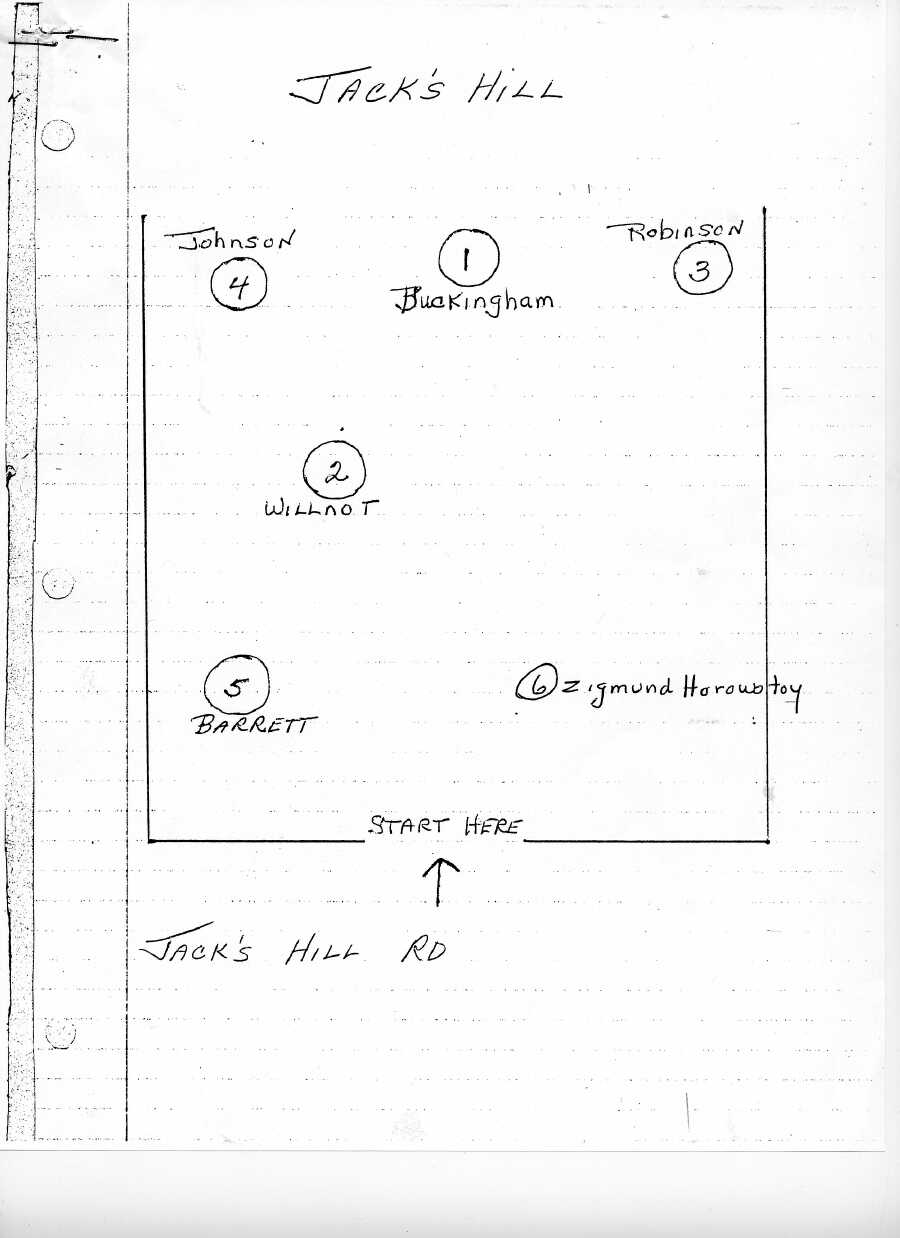 JACK'S HILL
Johnson
4
1
Buckingham
Robinson
3
2
WILLNOT
5
BARRETT
6 Zigmund
START HERE
JACK'S HILL RD